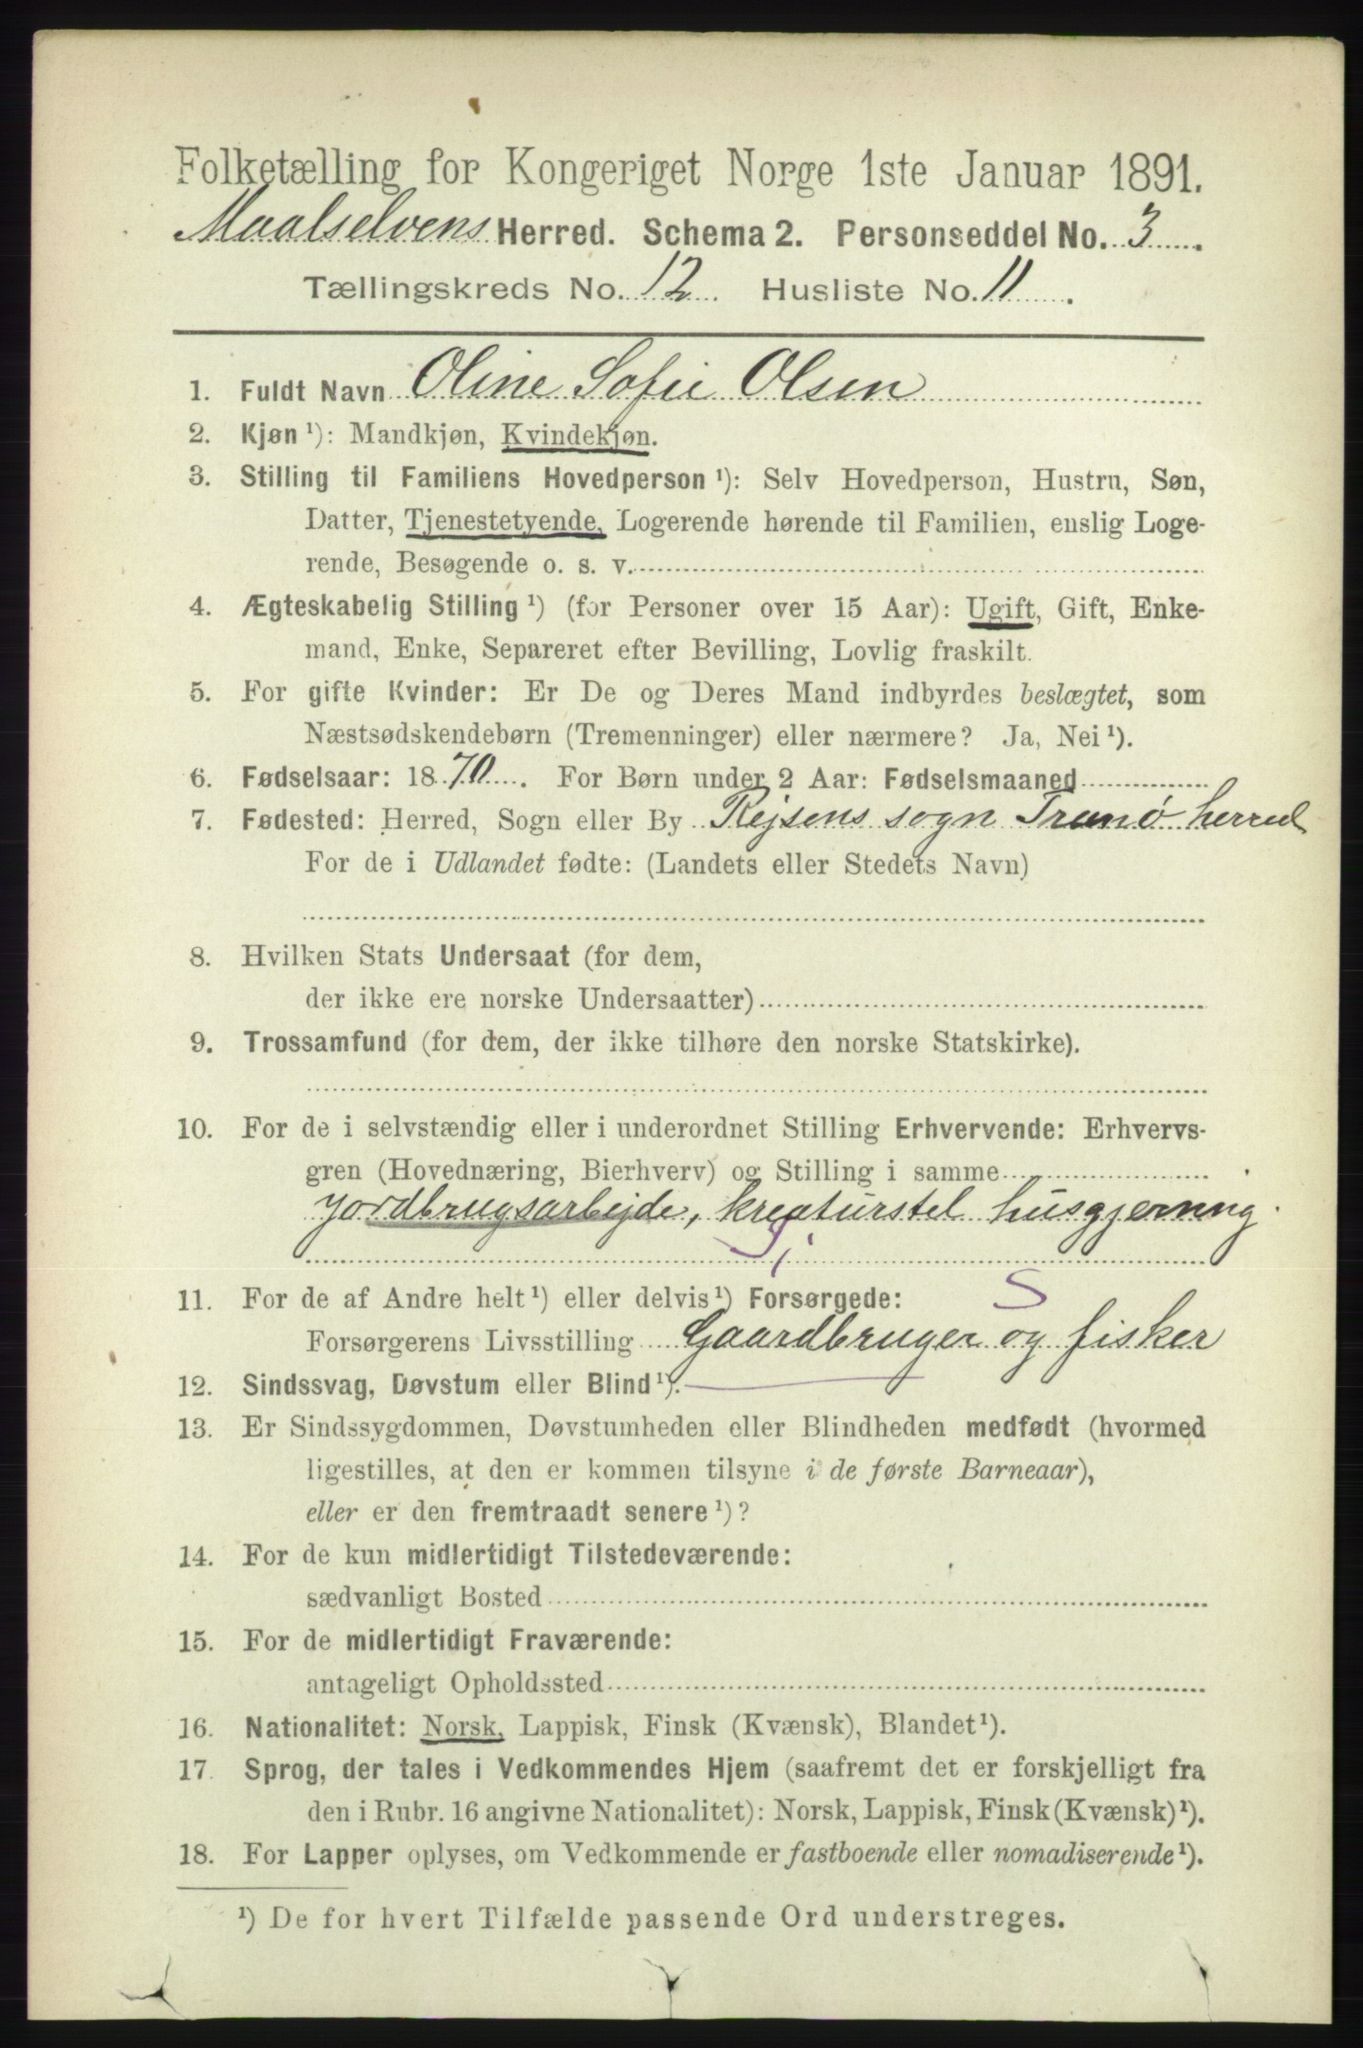 Folketælling for Kongeriget Norge 1ste Januar 1891.
Maalselvens Herred. Schema 2. Personseddel No. 3.
Tællingskreds No. 12. Husliste No. 11.
1. Fuldt Navn Oline Sofie Olsen
2. Kjøn ¹): Mandkjøn, Kvindekjøn.
3. Stilling til Familiens Hovedperson ¹): Selv Hovedperson, Hustru, Søn,
Datter, Tjenestetyende, Logerende hørende til Familien, enslig Loge-
rende, Besøgende o. s. v.
4. Ægteskabelig Stilling ¹) (for Personer over 15 Aar): Ugift, Gift, Enke-
mand, Enke, Separeret efter Bevilling, Lovlig fraskilt.
5. For gifte Kvinder: Er De og Deres Mand indbyrdes beslægtet, som
Næstsødskendebørn (Tremenninger) eller nærmere? Ja, Nei ¹).
6. Fødselsaar: 1870. For Børn under 2 Aar: Fødselsmaaned
7. Fødested: Herred, Sogn eller By Rejsens sogn Tranø herred
For de i Udlandet fødte: (Landets eller Stedets Navn)
8. Hvilken Stats Undersaat (for dem,
der ikke ere norske Undersaatter)
9. Trossamfund (for dem, der ikke tilhøre den norske Statskirke).
10. For de i selvstændig eller i underordnet Stilling Erhvervende: Erhvervs-
gren (Hovednæring, Bierhverv) og Stilling i samme
Jordbrugsarbejde, kreaturstel husgjerning.
11. For de af Andre helt ¹) eller delvis ¹) Forsørgede: S
Forsørgerens Livsstilling Gaardbruger og fisker
12. Sindssvag, Døvstum eller Blind ¹).
13. Er Sindssygdommen, Døvstumheden eller Blindheden medfødt (hvormed
ligestilles, at den er kommen tilsyne i de første Barneaar),
eller er den fremtraadt senere ¹)?
14. For de kun midlertidigt Tilstedeværende:
sædvanligt Bosted
15. For de midlertidigt Fraværende:
antageligt Opholdssted
16. Nationalitet: Norsk, Lappisk, Finsk (Kvænsk), Blandet ¹).
17. Sprog, der tales i Vedkommendes Hjem (saafremt det er forskjelligt fra
den i Rubr. 16 angivne Nationalitet): Norsk, Lappisk, Finsk (Kvænsk) ¹).
18. For Lapper oplyses, om Vedkommende er fastboende eller nomadiserende ¹).
¹) De for hvert Tilfælde passende Ord understreges.